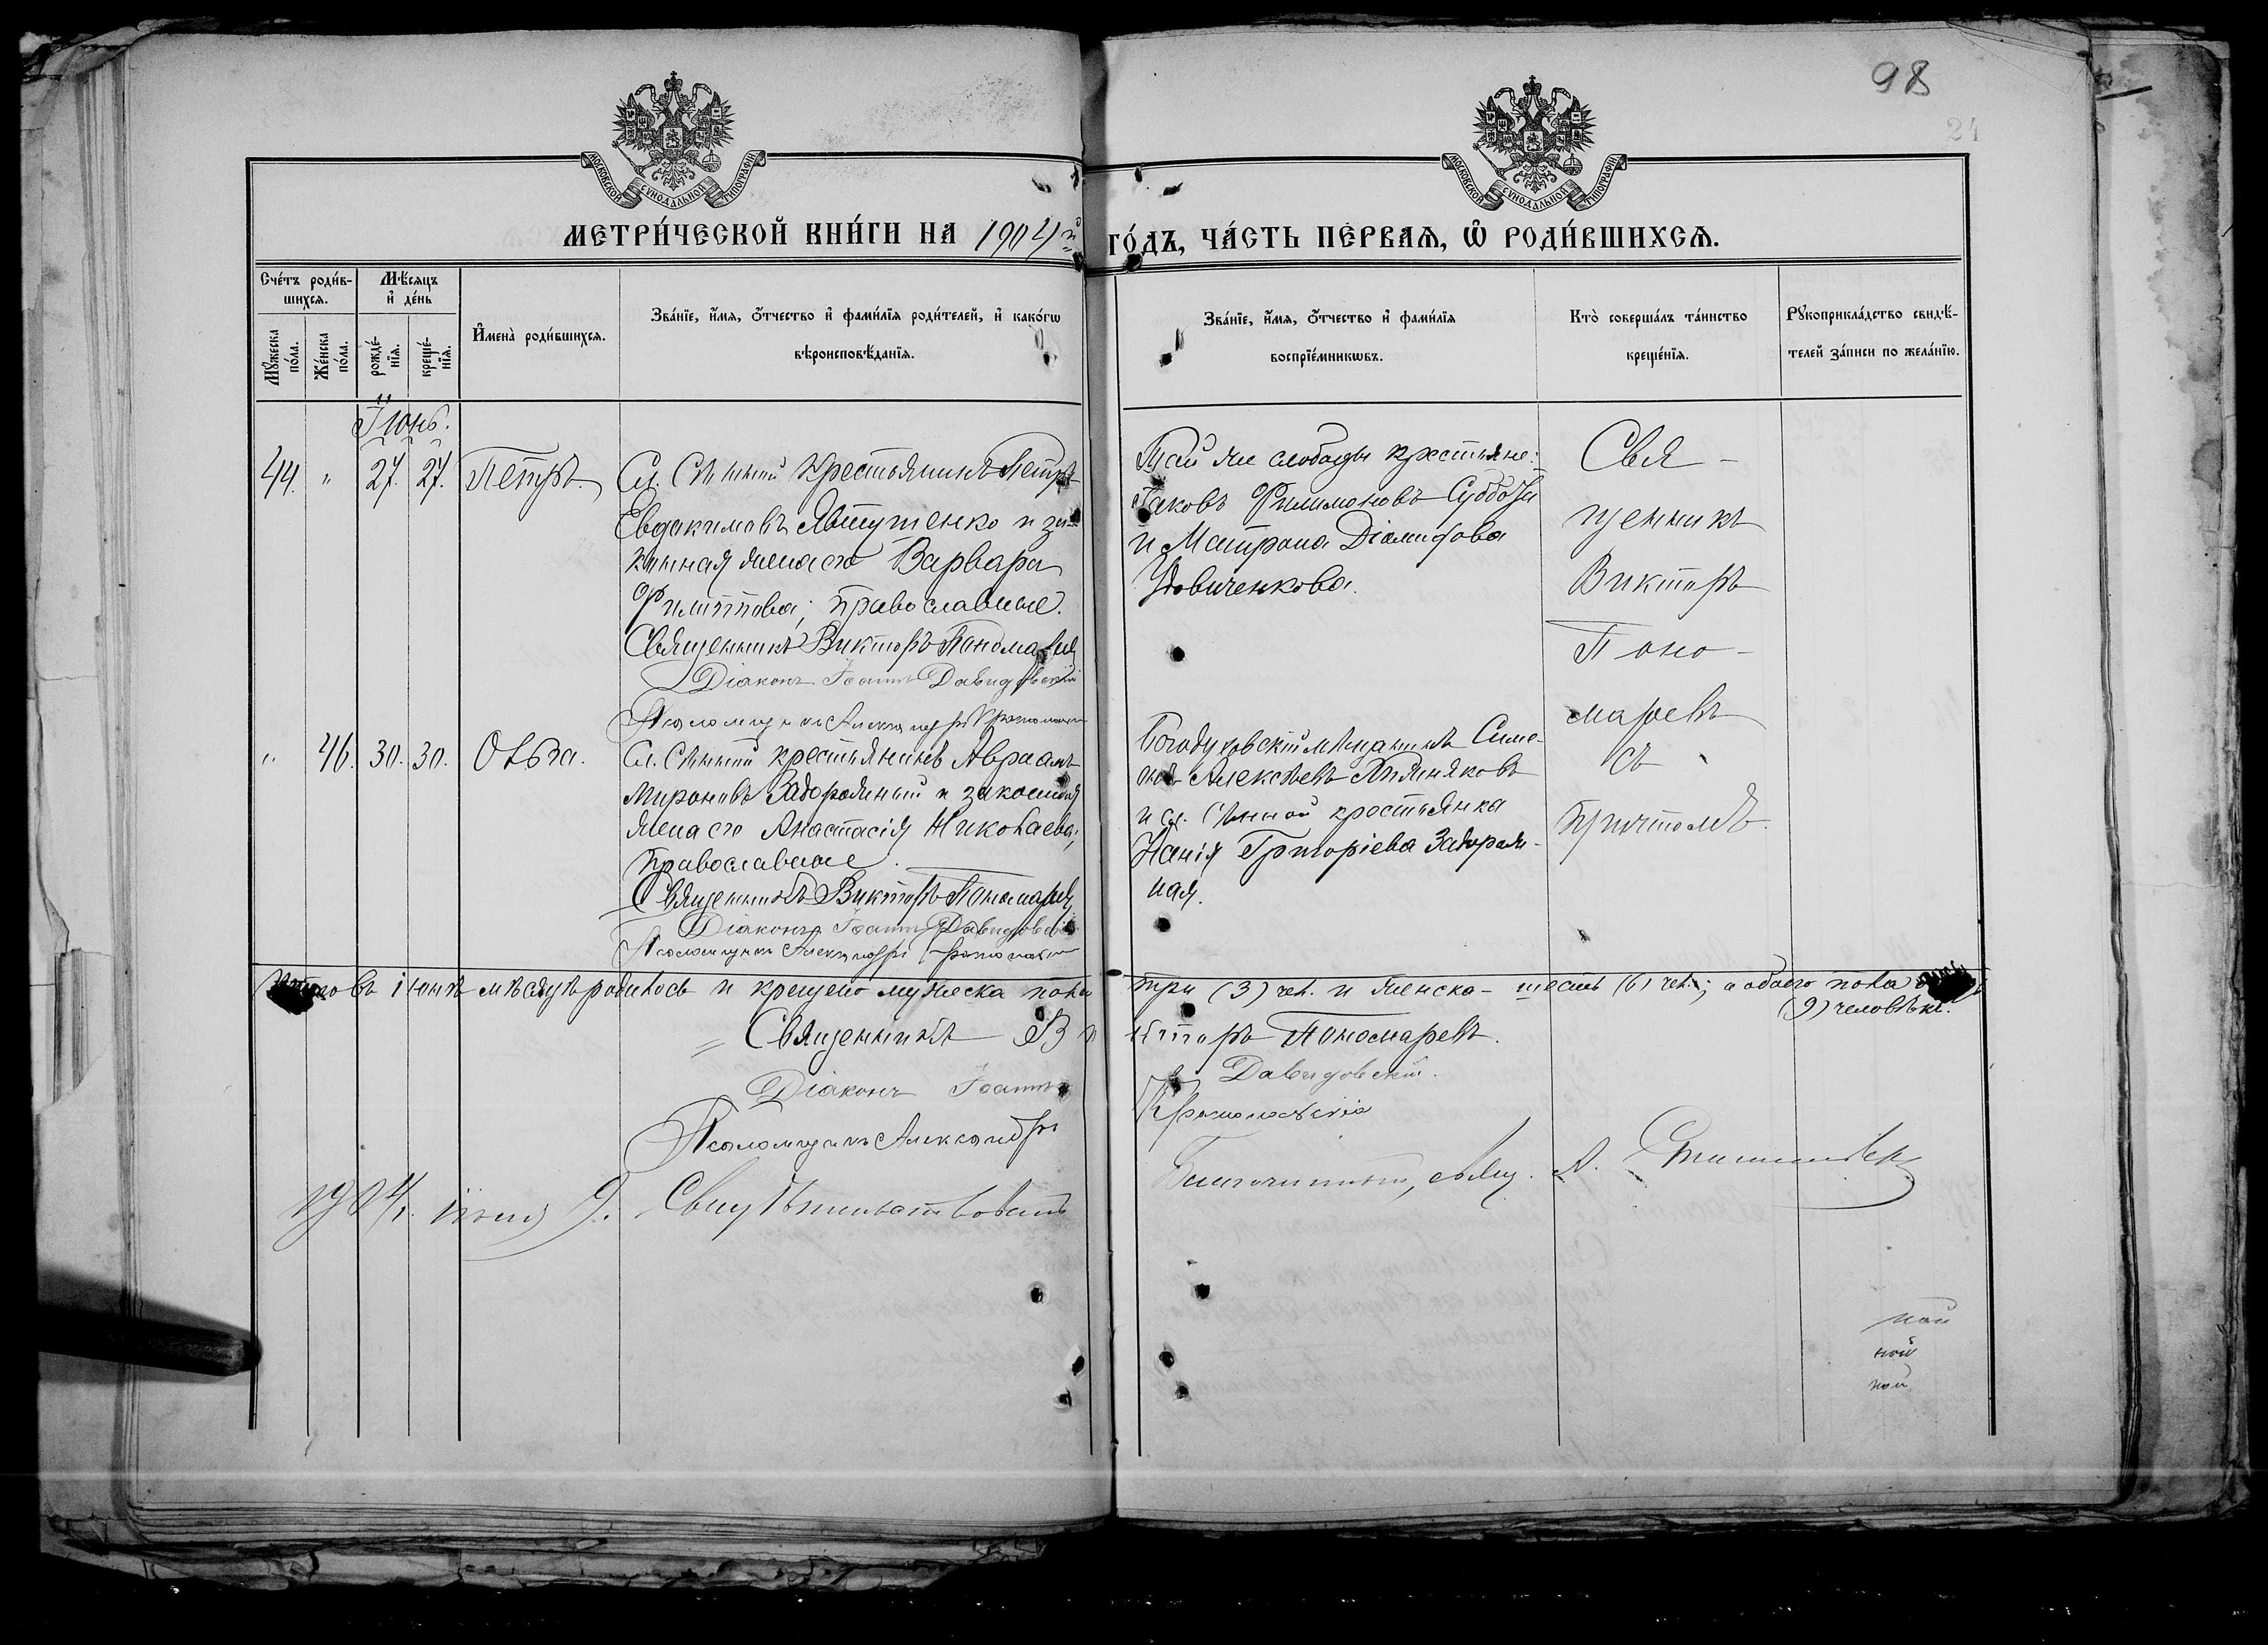 98
24
МОСКОВСКОЙ СѴНОДАЛЬНОЙ ТИПОГРАФІИ
МОСКОВСКОЙ СѴНОДАЛЬНОЙ ТИПОГРАФІИ
МЕТРИ́ЧЕСКОЙ КНИ́ГИ НА 1904й ГО́ДЪ, ЧА́СТЬ ПЕ́РВАЯ, Ѽ РОДИ́ВШИХСѦ.
Сче́тъ роди́вшихсѧ.
Мꙋ́жеска по́ла.
Же́нска по́ла.
Мѣ́сяцъ и҆ де́нь
рожде́нїѧ.
креще́нїѧ.
И҆мена̀ роди́вшихсѧ.
Зва́нїе, и҆́мя, ѻ҆́тчество и҆ фами́лїѧ роди́телей, и҆ како́гѡ
вѣроисповѣ́данїѧ.
Зва́нїе, и҆́мя, ѻ҆́тчество и҆ фами́лїѧ
воспрїе́мникѡвъ.
Кто̀ соверша́лъ та́инство
креще́нїѧ.
Рꙋкоприкла́дство свидѣ́-
телей за́писи по жела́нїю.
Іюнь.
44. " 27. 27. Петръ.
Сл. Сѣнной крестьянинъ Петръ
Евдокимовъ Явтушенко и за-
конная жена его Варвара
Филиппова; православные.
Священникъ Викторъ Пономаревъ
Діаконъ Іоаннъ Давидовскій
Псаломщикъ Александръ
Той же слободы крестьяне:
Іаковъ Филимоновъ Суббота
и Матрона Діомидова
Удовиченкова.
Свя-
щенникъ
Викторъ
Поно-
маревъ
съ
причтомъ.
" 46. 30. 30. Ольга.
Сл. Сѣнной крестьянинъ Авраамъ
Мироновъ Задорожный и законная
жена его Анастасія Николаева;
православные.
Священникъ Викторъ Пономаревъ
Діаконъ Іоаннъ Давидовскій
Псаломщикъ Александръ
Богодуховскій мѣщанинъ Симе-
онъ Алексѣевъ
и сл. Сѣнной крестьянка
Григоріева Задорож-
ная.
Итого въ іюнѣ мѣсяцѣ родилось и крещено мужеска пола три (3) чел. и женска - шесть (6) чел.; а обоего пола девять
(9) человѣкъ.
Священникъ Викторъ Пономаревъ.
Діаконъ Іоаннъ Давидовскій.
Псаломщикъ Александръ
1904 г. іюля 9. Свидѣтельствовалъ Благочинный, свящ. А.
ной
ной
ной